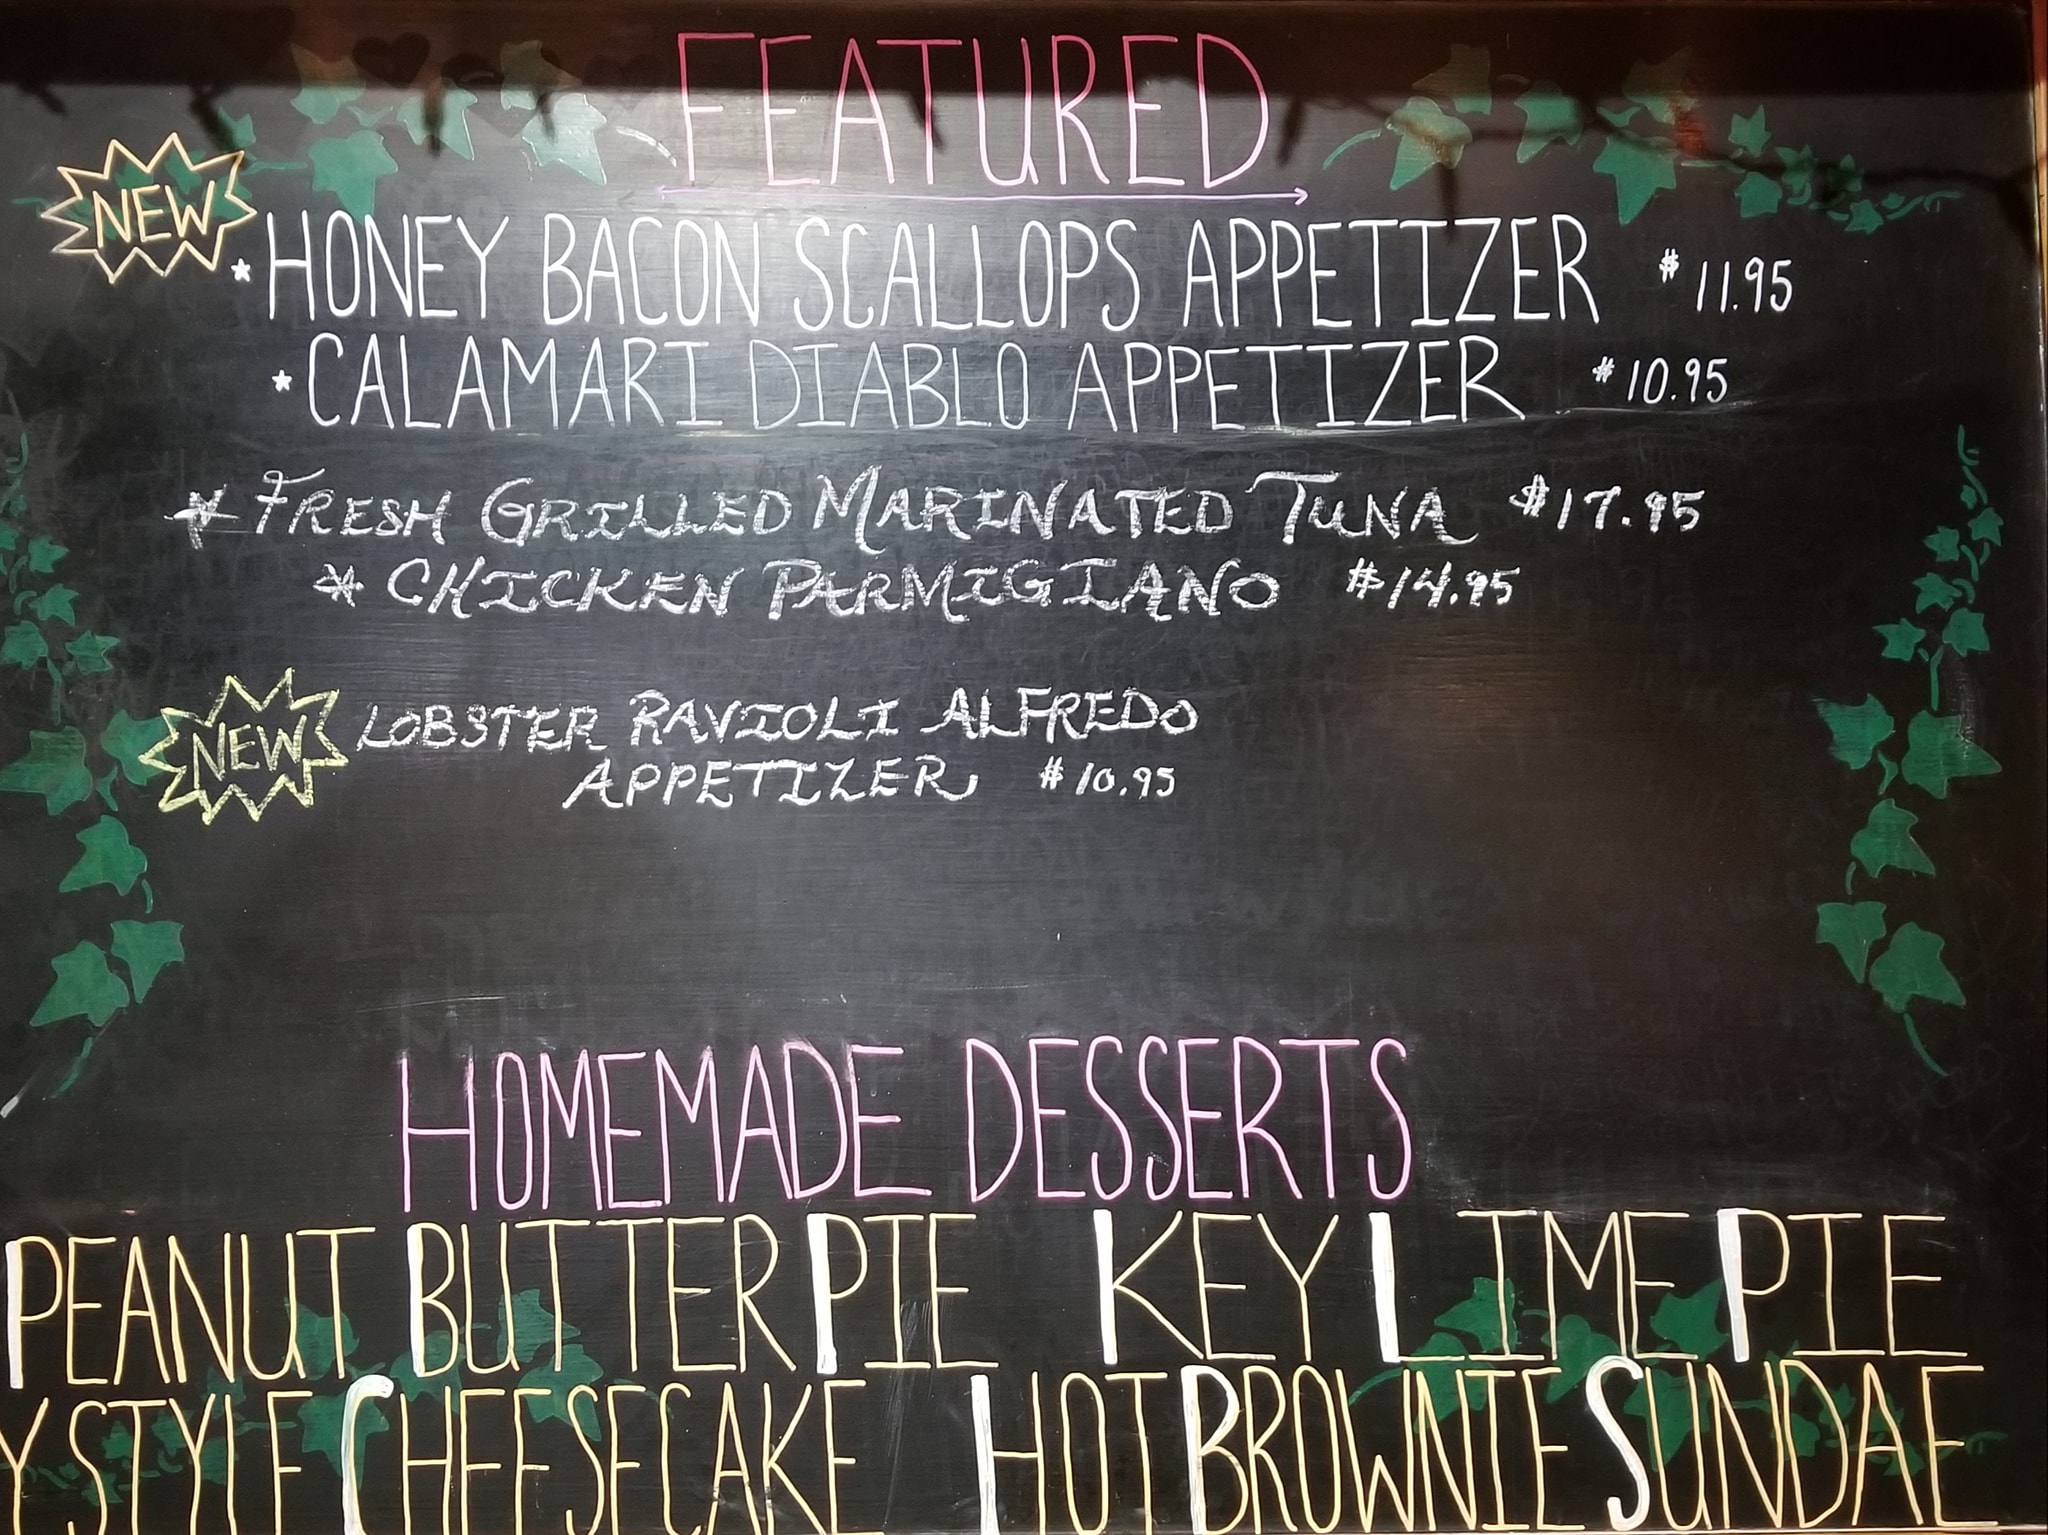 FEATURED
NEW
* HONEY BACON SCALLOPS APPETIZER $11.95
* CALAMARI DIABLO APPETIZER $10.95
* FRESH GRILLED MARINATED TUNA $17.95
* CHICKEN PARMIGIANO $14.95
NEW
LOBSTER RAVIOLI ALFREDO
APPETIZER $10.95
HOMEMADE DESSERTS
PEANUT BUTTER PIE KEY LIME PIE
Y STYLE CHEESECAKE HOT BROWNIE SUNDAE